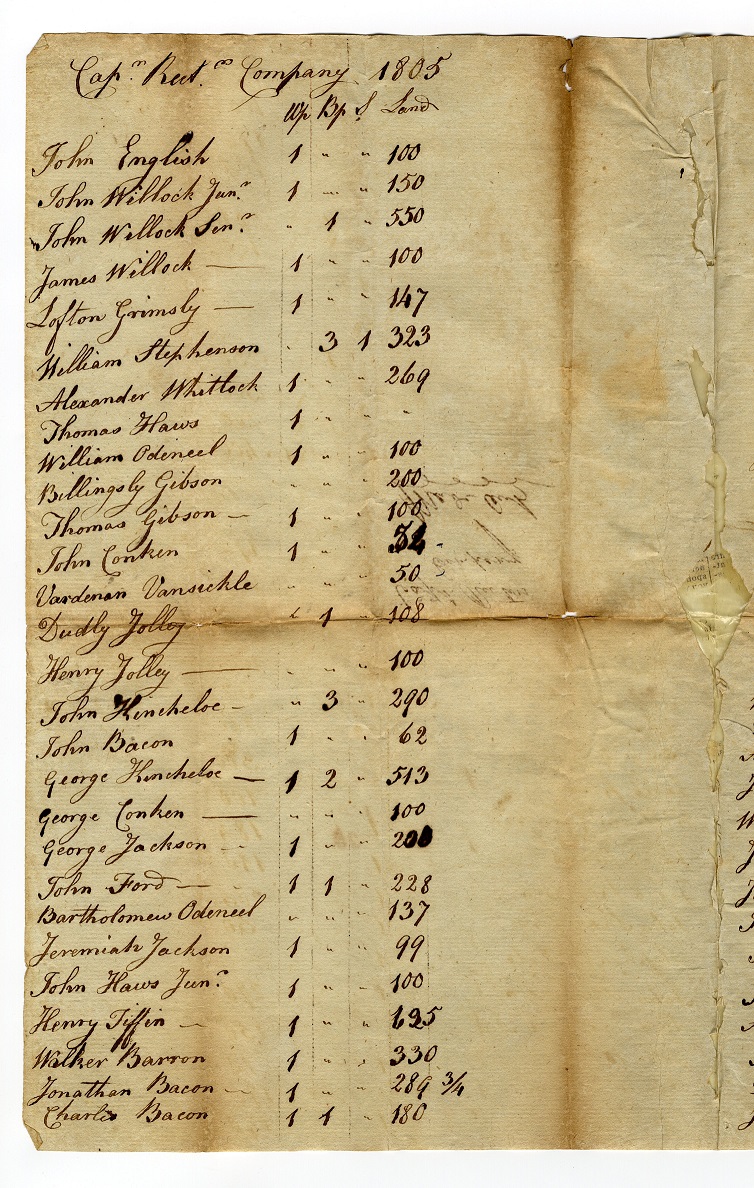 Capn. Rect.s Company 1805
Wp Bp S. Land
John English 1 " " 100
John Willock Junr. 1 " " 150
John Willock Senr. " 1 " 550
James Willock — 1 " " 100
Lofton Grimsly — 1 " " 147
William Stephenson " 3 1 323
Alexander Whitlock 1 " " 269
Thomas Haws 1 " " "
William Odeneel 1 " " 100
Billingsly Gibson " " " 200
Thomas Gibson — 1 " " 100
John Conken 1 " "
Vardenan Vansickle " " " 50
Dudly Jolley " 1 " 108
Henry Jolley — " " " 100
John Kincheloe - " 3 " 290
John Bacon 1 " " 62
George Kincheloe — 1 2 " 513
George Conken — " " " 100
George Jackson - 1 " " 200
John Ford — 1 1 " 228
Bartholomew Odeneel " " " 137
Jeremiah Jackson 1 " " 99
John Haws Junr. 1 " " 100
Henry Tiffin — 1 " " 625
Walker Barron 1 " " 330
Jonathan Bacon — 1 " " 289 3/4
Charles Bacon 1 1 " 180